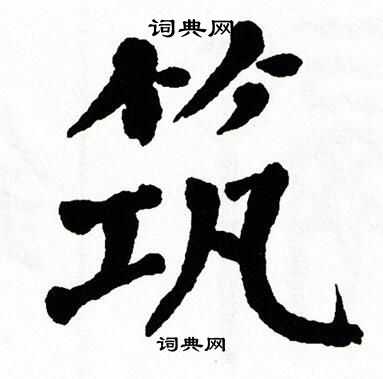 词典网
筑
词典网